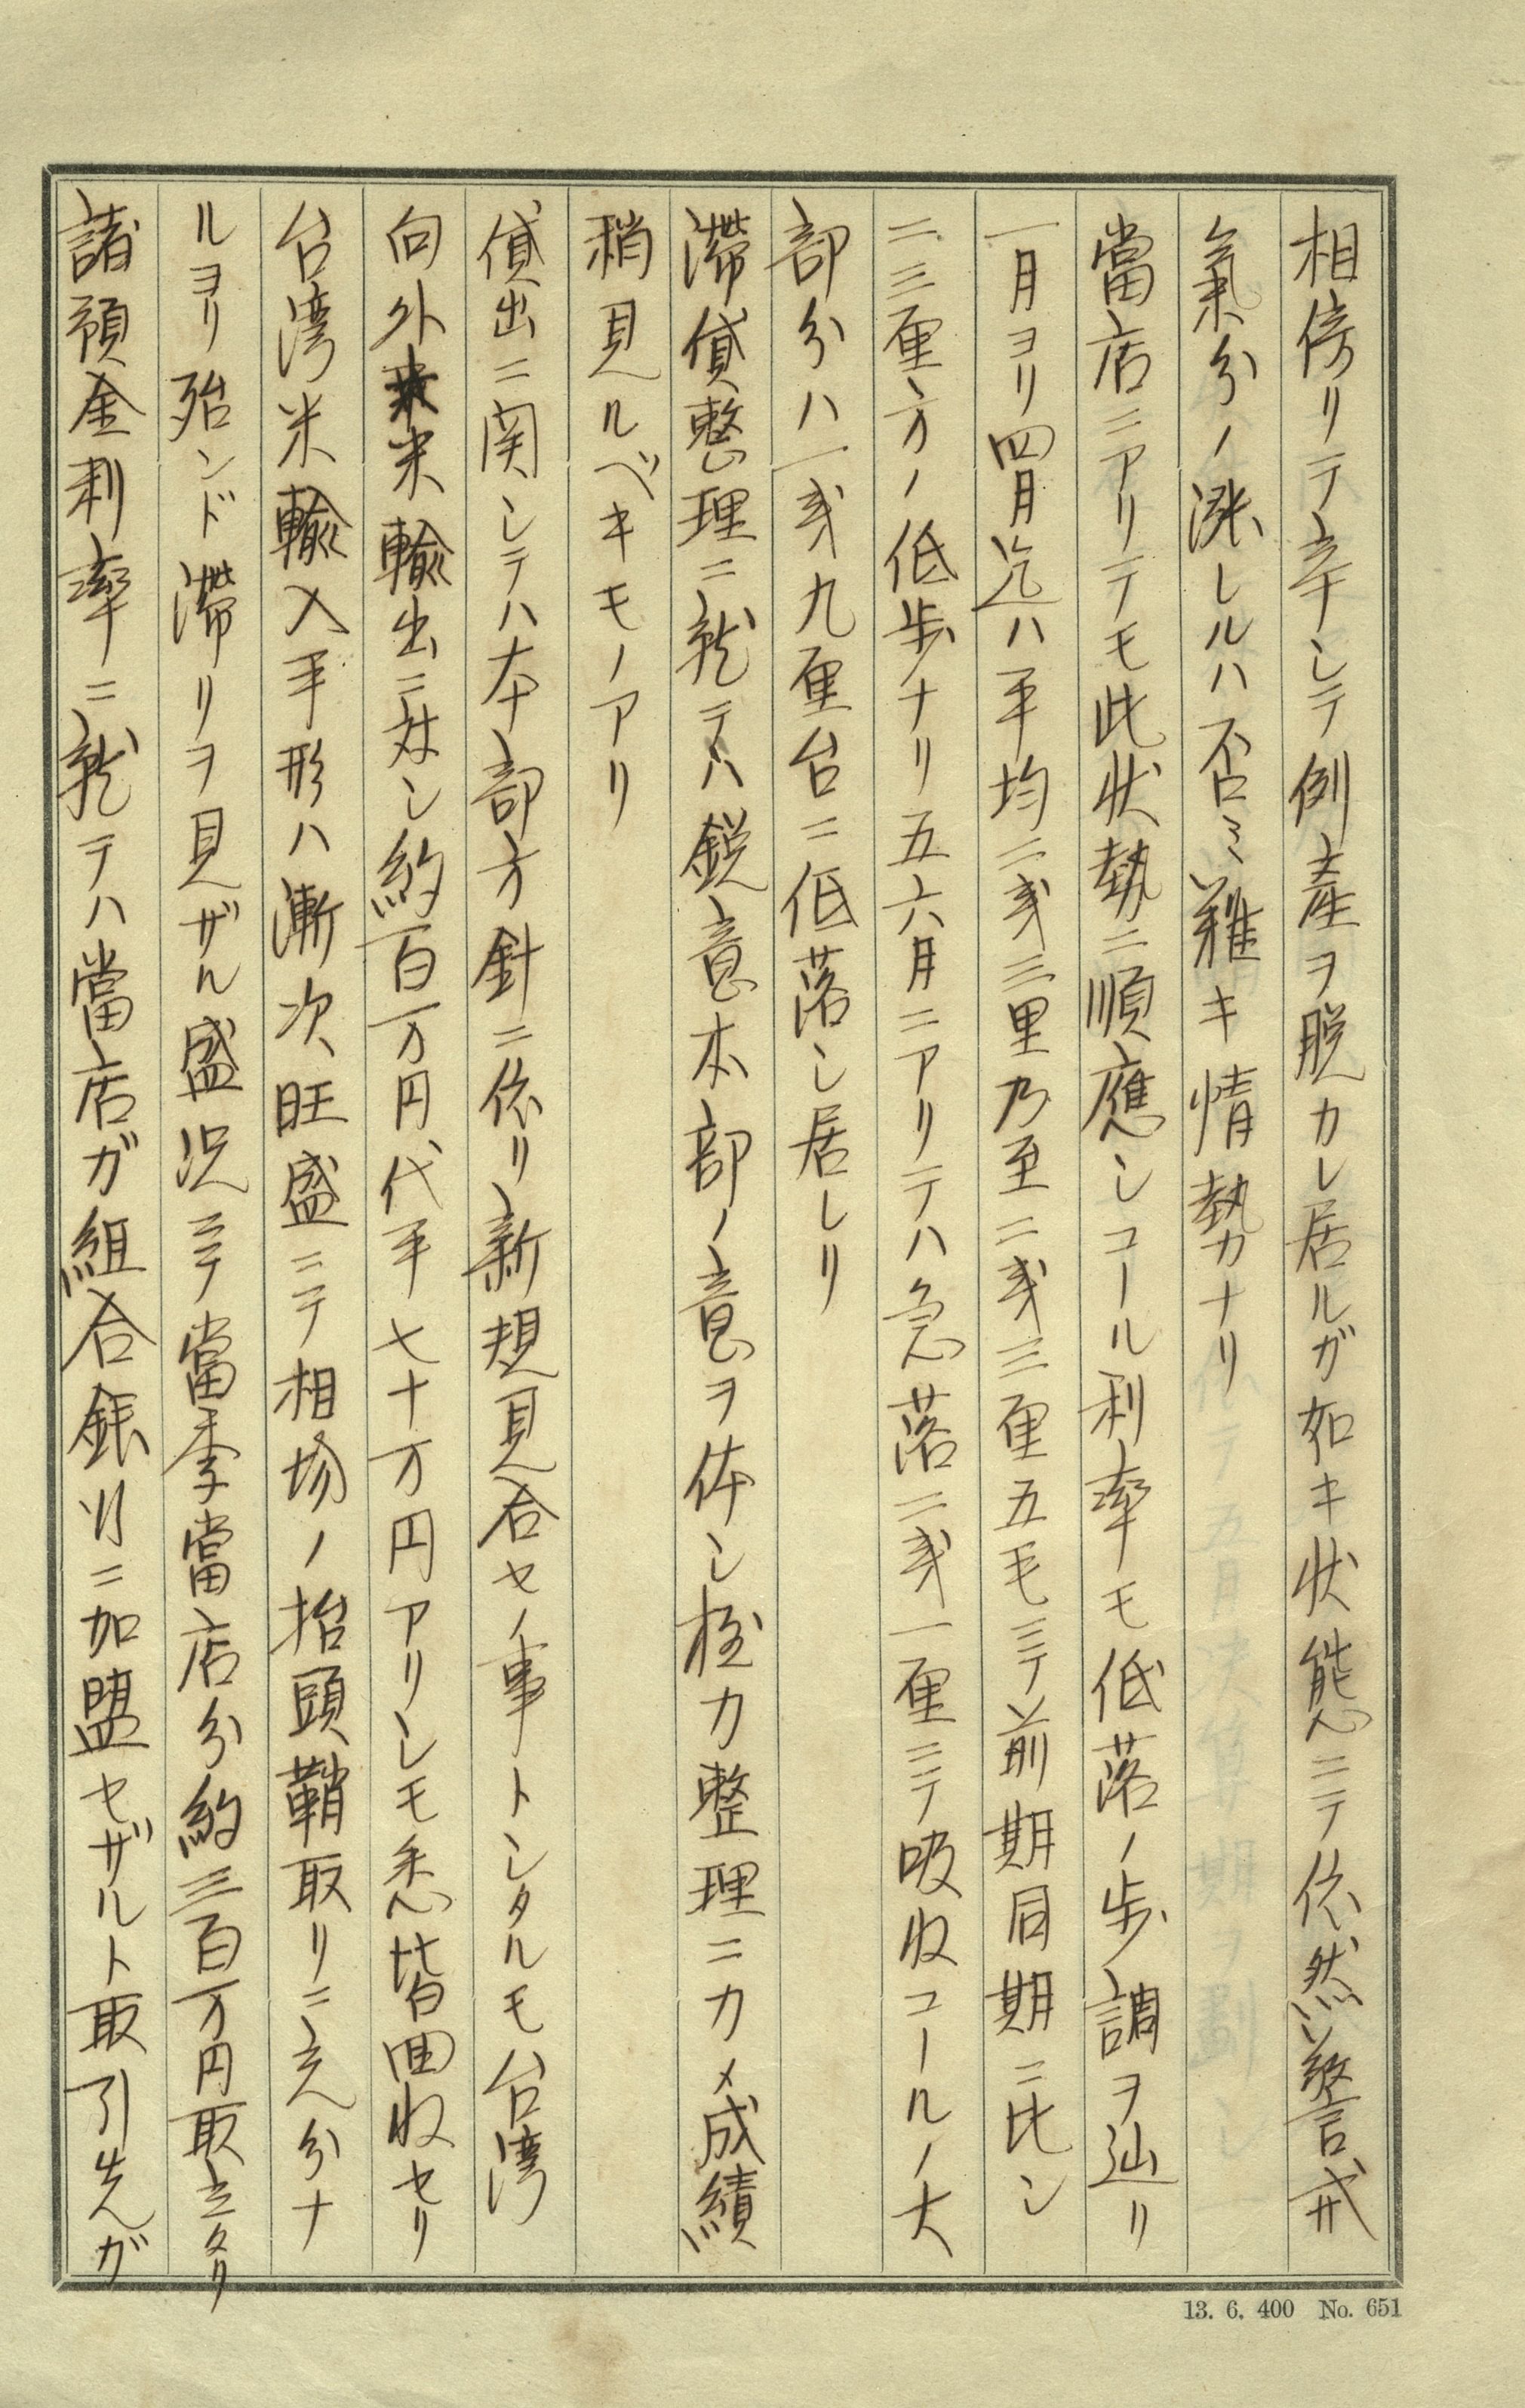 相傍リテ辛シテ例産ヲ脱カレ居ルガ如キ状態ニテ依然警戒
氣分ノ漲レルハ否ミ難キ情勢ナリ
當店ニアリテモ此状勢ニ順應シコール利率モ低落ノ歩調ヲ辿リ
一月ヨリ四月迄ハ平均二戔三厘乃至二戔三厘五毛ニテ前期同期ニ比シ
二三厘方ノ低歩ナリ五六月ニアリテハ急落二戔一厘ニテ吸收コールノ大
部分ハ一戔九厘台ニ低落シ居レリ
滯貸整理ニ就テハ鋭意本部ノ意ヲ体シ極力整理ニカメ成績
稍見ルベキモノアリ
貸出ニ関シテハ本部方針ニ依リ新規見合セノ事トシタルモ台湾
向外米輸出ニ対シ約百万円代手七十万円アリシモ悉皆回收セリ
台湾米輸入手形ハ漸次旺盛ニテ相場ノ抬頭鞘取リニ充分ナ
ルヨリ殆ンド滯リヲ見ザル盛況ニテ當季當店分約三百万円取立タリ
諸預金利率ニ就テハ當店ガ組合銀行ニ加盟セザルト取引先ガ
13. 6. 400 No. 651